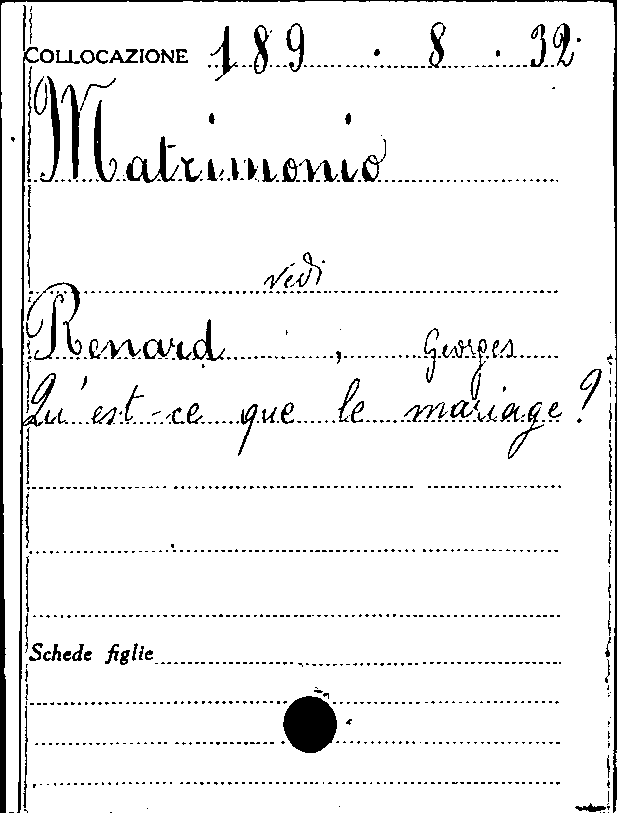 COLLOCAZIONE 189 . 8 . 32.
Matrimonio
vedi
Renard , Georges
Qu'est-ce que le mariage?
Schede figlie